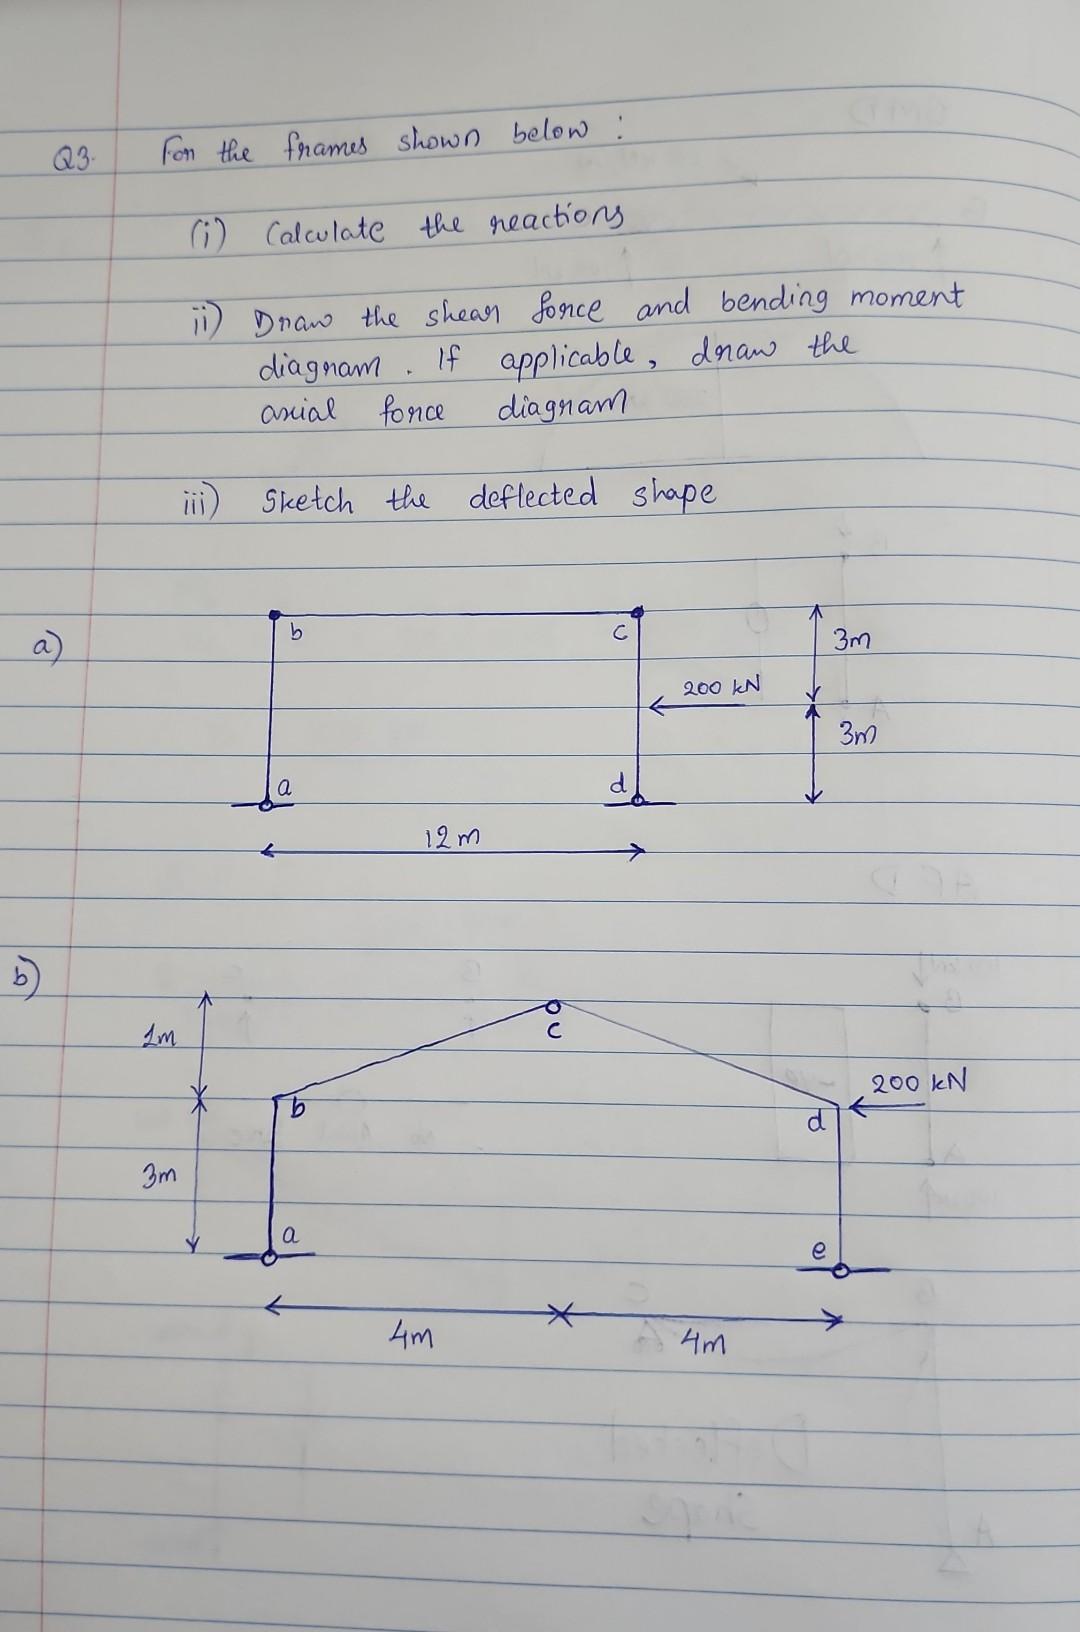 Q3. For the frames shown below :
(i) Calculate the reactions
ii) Draw the shear force and bending moment
diagram . If applicable, draw the
axial force diagram
iii) Sketch the deflected shape
a)
b
c
3m
200 kN
3m
a
d
12m
b)
c
1m
200 kN
b
d
3m
a
e
4m
4m